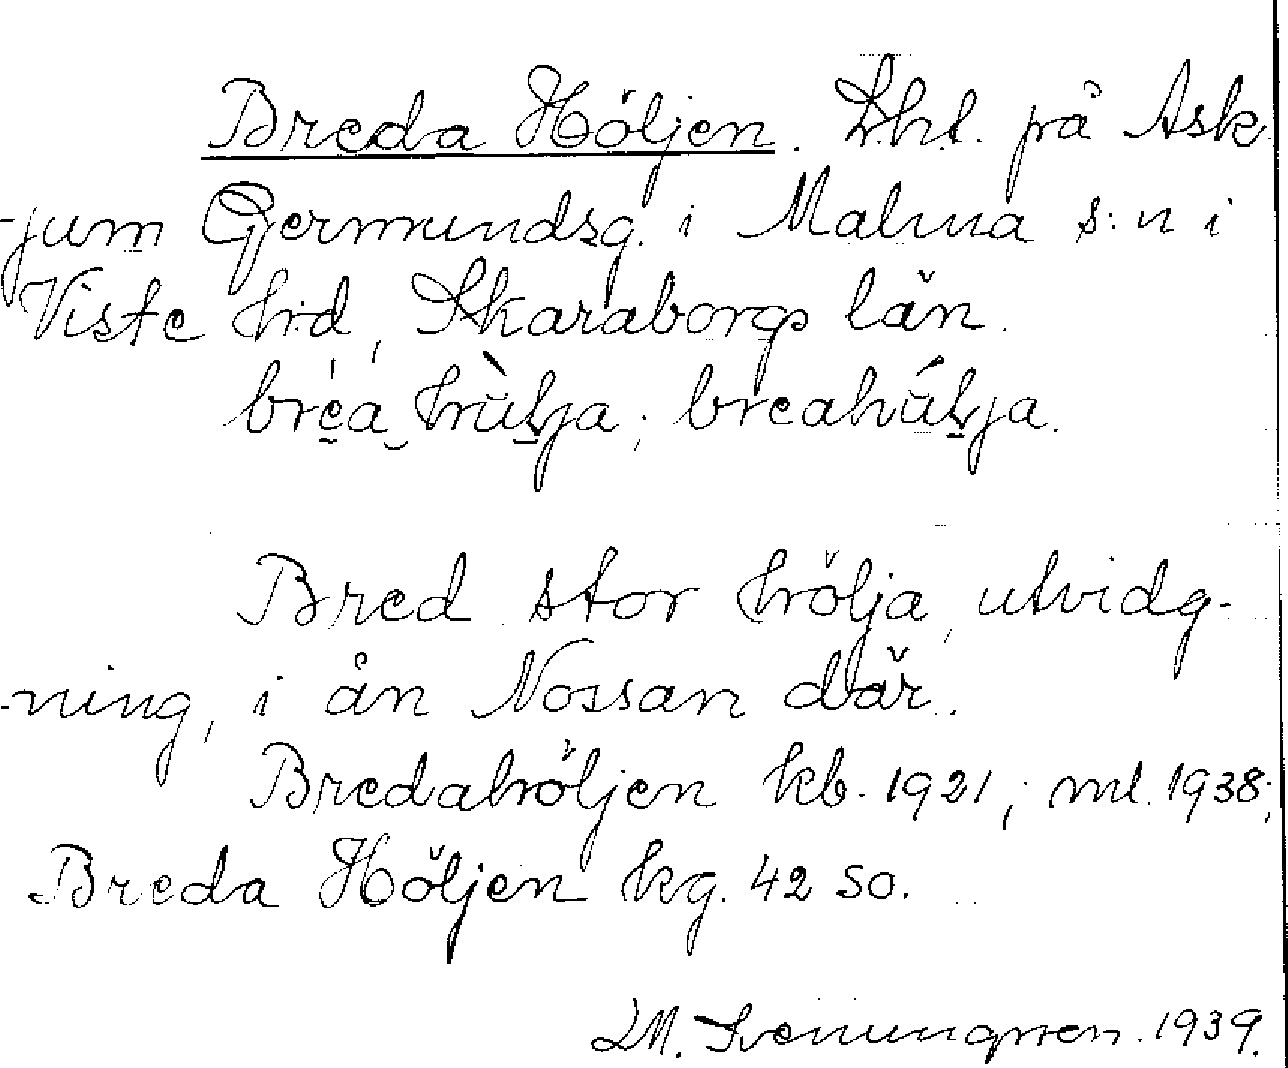 Breda Höljen. Lht. på Ask-
jum Germundsg. i Malma s:n i
Viste hd, Skaraborgs län.
brea hùlja; breahúlja.
Bred stor hölja, utvidg-
ning, i ån Nossan där.
Bredahöljen kb. 1921; ml. 1938;
Breda Höljen kg. 42 so.
1939.